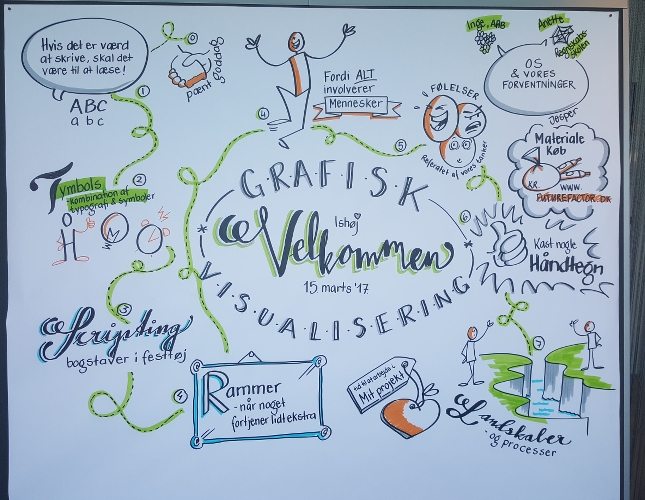 Hvis det er værd
at skrive, skal det
være til at læse!
ABC
a b c
1
0
pænt goddag
Inge, AAB
Anette
Regnskabs-
skolen
OS
& VORES
FORVENTNINGER
Jesper
Fordi ALT
involverer
Mennesker
4
FØLELSER
5
Referatet af vores tanker
Materiale
Køb
KR.
WWW.
FUTUREFACTOR.DK
Tymbols
-kombination af
typografi & symboler
2
G·R·A·F·I·S·K
Ishøj
Velkommen
15 marts '17
V·I·S·U·A·L·I·S·E·R·I·N·G
6
Kast nogle
Håndtegn
3
Scripting
bogstaver i festtøj
4
Rammer
- når noget
fortjener lidt ekstra
Mit projekt
7
Landskaber
- og processer